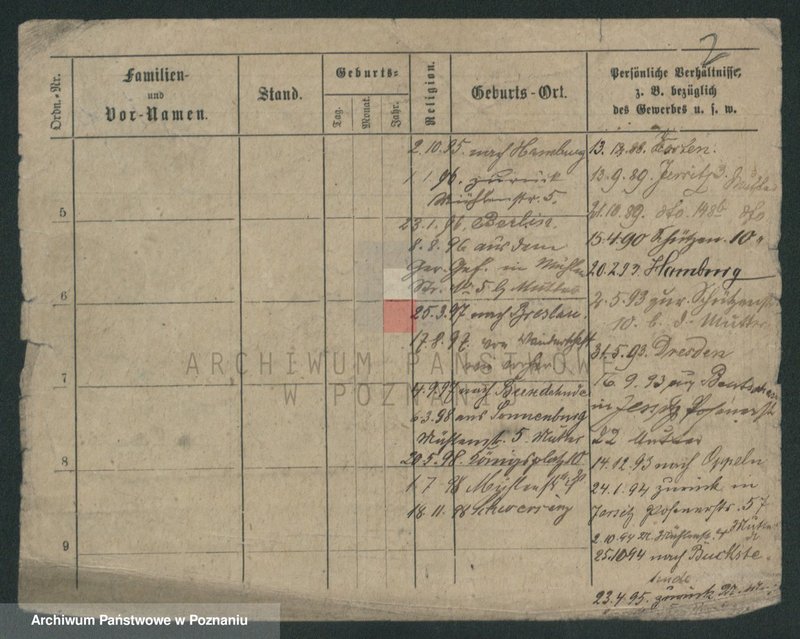 2
Ordn.-Nr.
Familien-
und
Vor-Namen.
Stand.
Geburts-
Tag.
Monat.
Jahr.
Religion.
Geburts-Ort.
Persönliche Verhältnisse,
z. B. bezüglich
des Gewerbes u. s. w.
5
6
7
8
9
2.10.95. nach Hamburg
1.1.96. zurück
Mühlenstr. 5.
23.1.96. Berlin.
8.8.96 aus dem
Ger. Gef. in
Str. No 5 b Mutter
25.3.97 nach Breslau.
17.8.97. von Wanderschaft
4.9.97 nach
6.3.98 aus Sonnenburg
Mühlenstr. 5. Mutter
20.5.98. Königsplatz 10
1.7.98 Mühlenstr.
18.11.98 Schwersenz
13.12.88.
13.9.89. Jersitz
21.10.89. dto dto
15.4.90 Schützen. 10
20.2.93. Hamburg
2.5.93 zur. Schützenstr
10. b. d. Mutter
31.5.93. Dresden
16.9.93
in Jersitz Posenerstr
22 Mutter
14.12.93 nach Oppeln
24.1.94 zurück in
Jersitz Posenerstr. 57
2.10.94 Mühlenstr. Mutter
25.10.94 nach Buckste
hude
23.4.95. zurück
ARCHIWUM PAŃSTWOWE
W POZNANIU
Archiwum Państwowe w Poznaniu